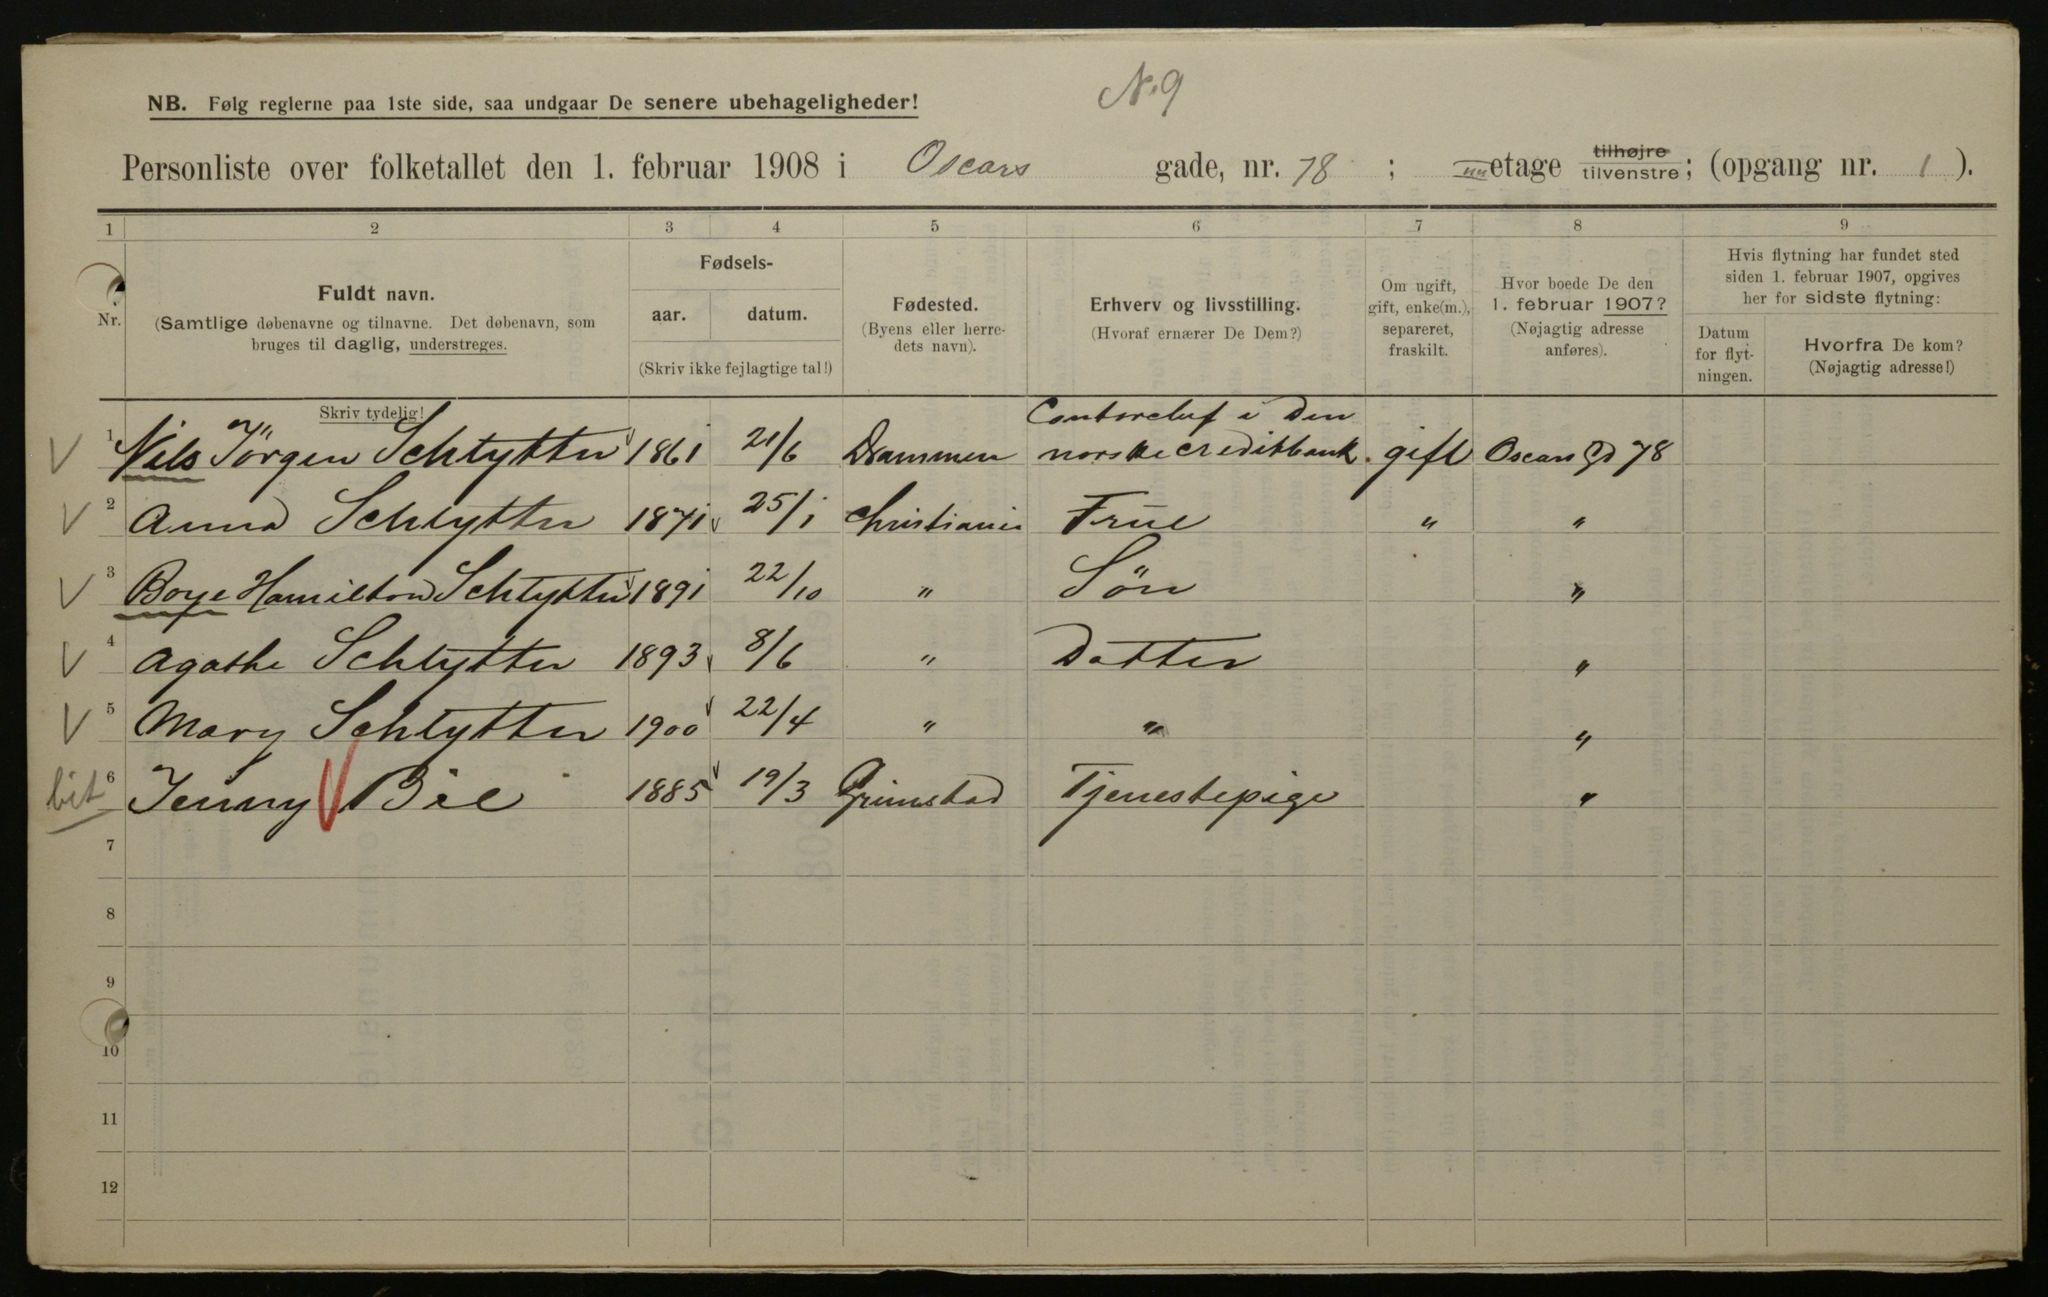 N.9
NB. Følg reglerne paa 1ste side, saa undgaar De senere ubehageligheder!
Personliste over folketallet den 1. februar 1908 i Oscars gade, nr. 78 ; etage tilhøjre tilvenstre; (opgang nr. 1 ).
1 2 3 4 5 6 7 8 9
Nr.
Fuldt navn.
(Samtlige døbenavne og tilnavne. Det døbenavn, som
bruges til daglig, understreges.
Skriv tydelig!
Fødsels-
aar. datum.
(Skriv ikke fejlagtige tal!)
Fødested.
(Byens eller herre-
dets navn).
Erhverv og livsstilling.
(Hvoraf ernærer De Dem?)
Om ugift,
gift, enke(m.),
separeret,
fraskilt.
Hvor boede De den
1. februar 1907?
(Nøjagtig adresse
anføres).
Hvis flytning har fundet sted
siden 1. februar 1907, opgives
her for sidste flytning:
Datum
for flyt-
ningen.
Hvorfra De kom?
(Nøjagtig adresse!)
1 Nils Jörgen Schlytter 1861 21/6 Drammen Contorchef i Den norske creditbank. gift Oscars Gd 78
2 Anna Schlytter 1871 25/1 Christiania Frue " "
3 Boye Hamilton Schlytter 1891 22/10 " Sön "
4 Agathe Schlytter 1893 8/6 " Datter "
5 Mary Schlytter 1900 22/4 " " "
bit 6 Jenny Bie 1885 19/3 Grimstad Tjenestepige "
7
8
9
10
11
12